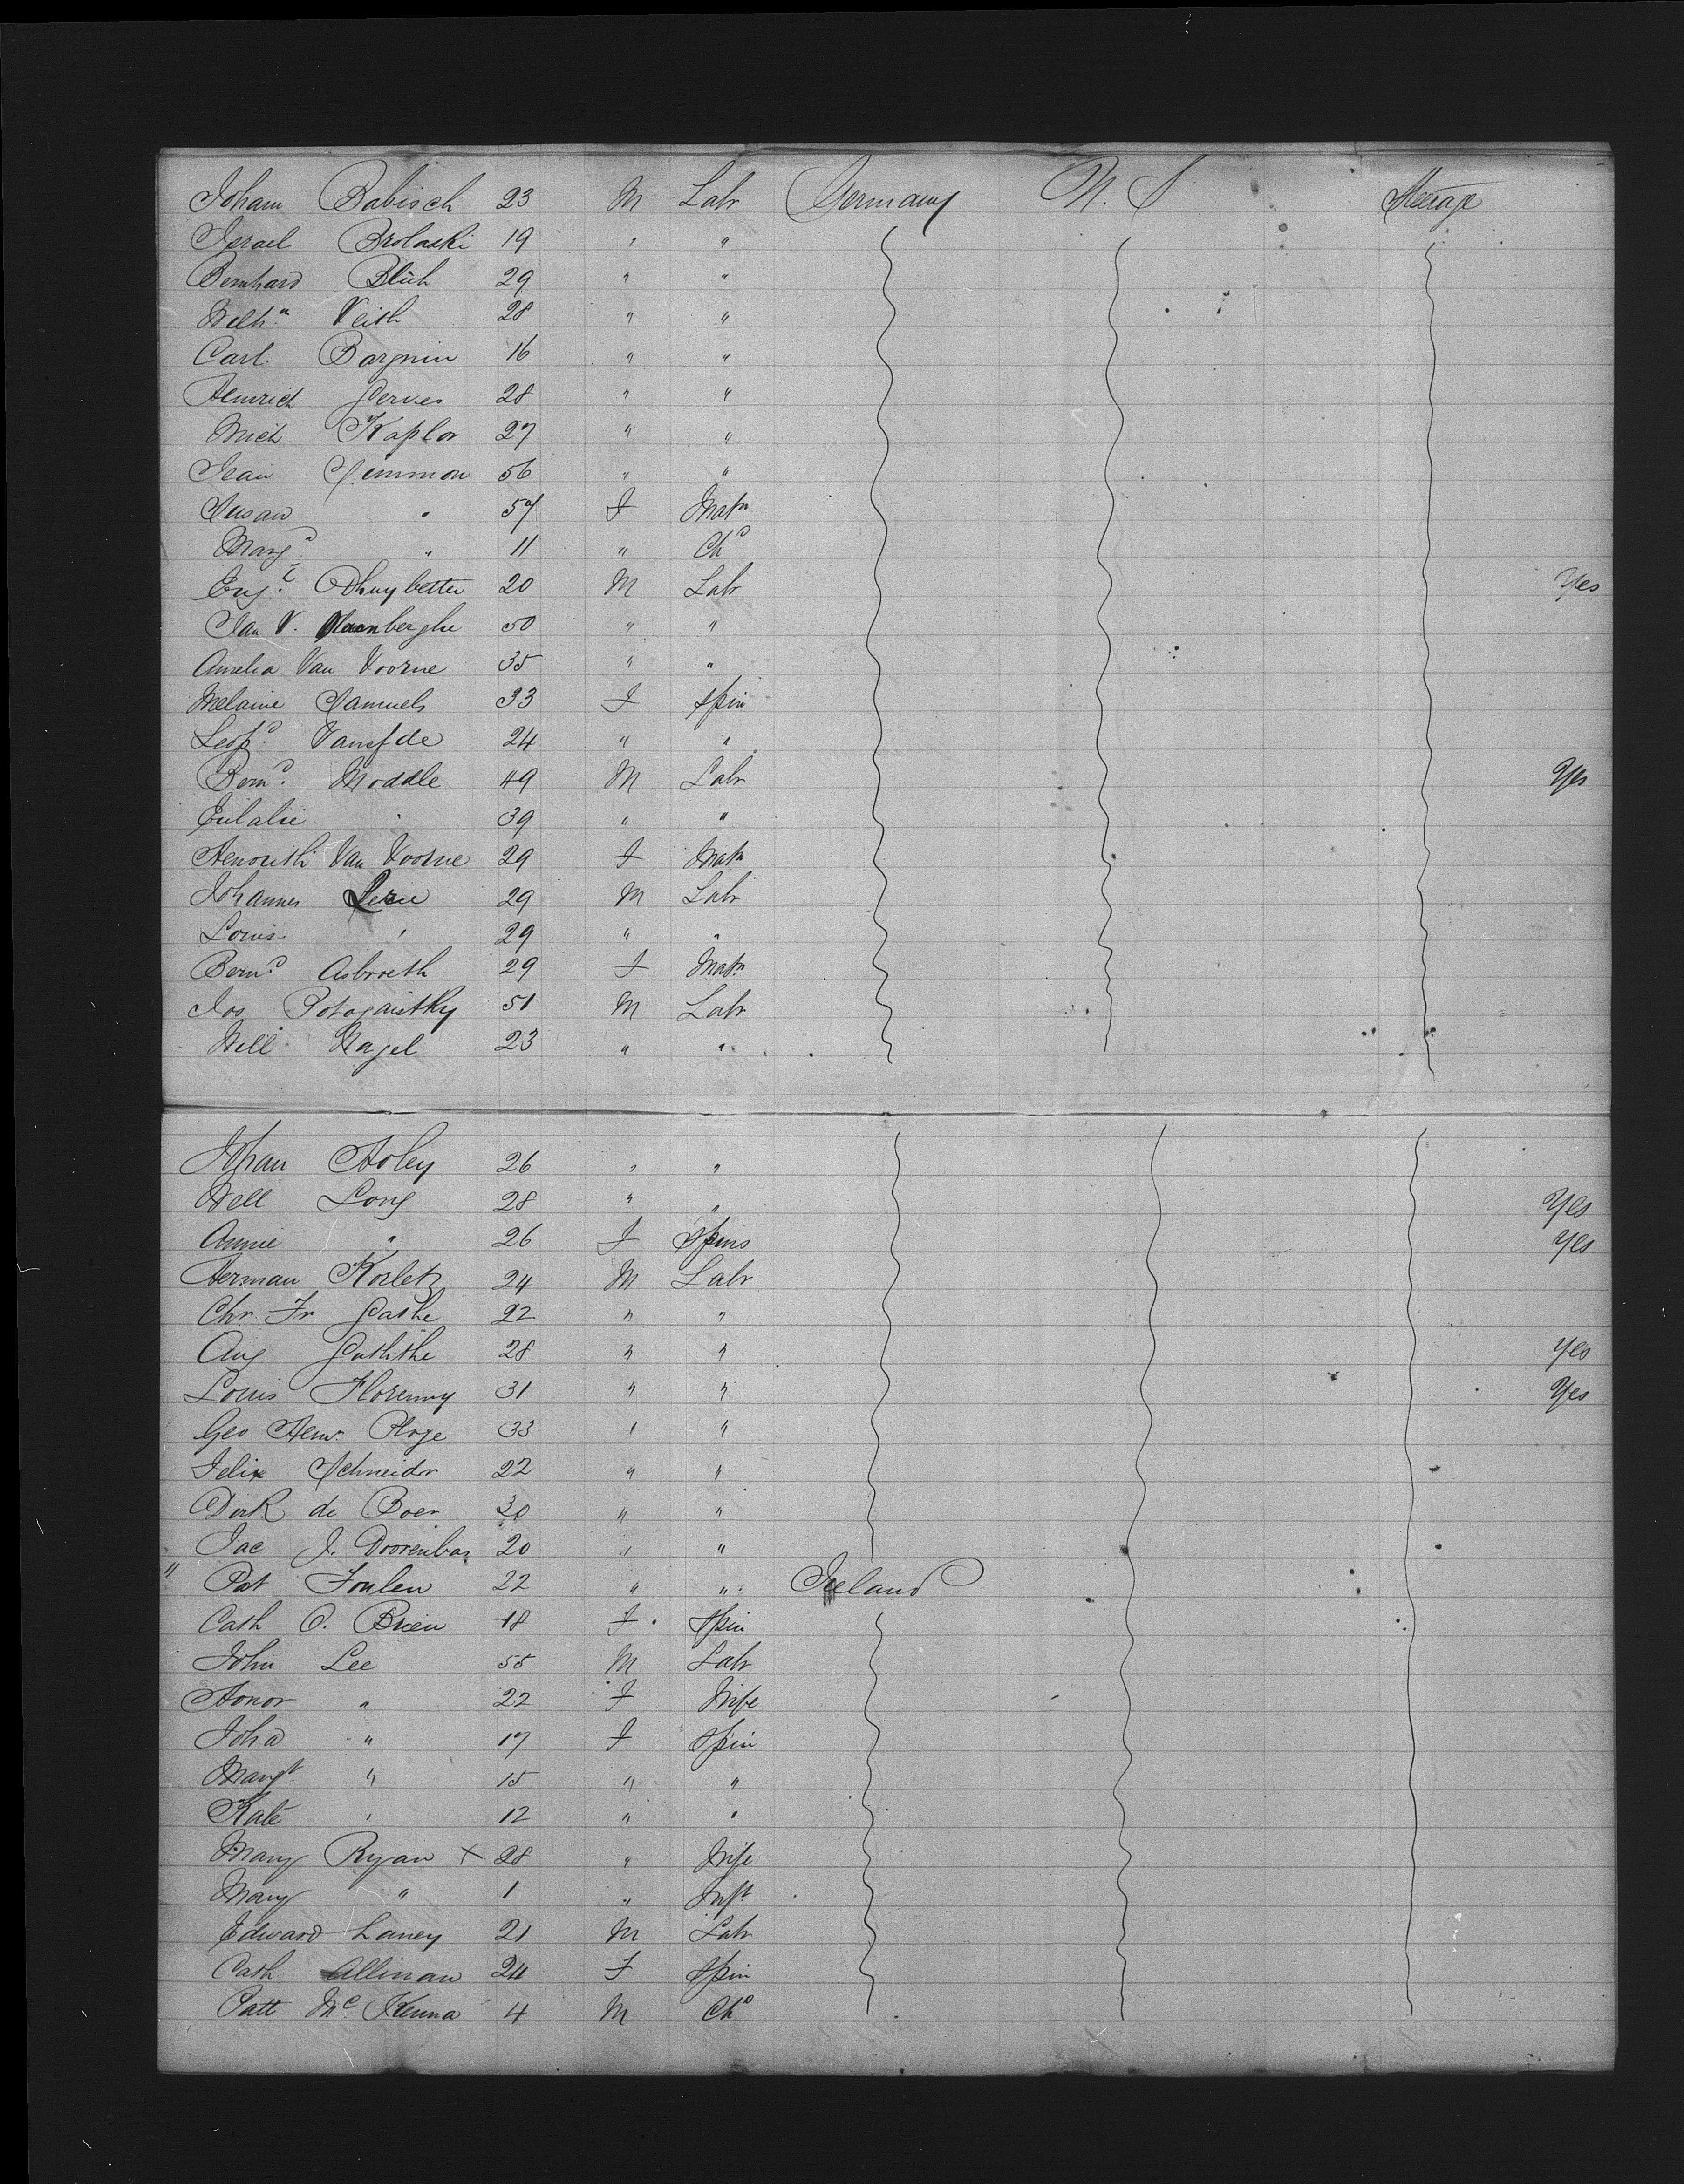 Joham Babisch 23 M Labr Germany U. S Steerage
Israel Brolaski 19 " "
Bernhard Blüh 29 " "
Welh.m Veith 28 " "
Carl. Bargnin 16 " "
Heinrich Perves 28 " "
Mich Kaplor 27 " "
Jean Semmon 56 " "
Susan " 57 F Matn
Marg " 11 " Chd
Eug. Dhuybetter 20 M Labr Yes
Jan V. berghe 50 " "
Amelia Van Voorne 35 " "
Melanie Samuels 33 F Spin
Leopd. 24 " "
Bernd. Moddle 49 M Labr Yes
Eulalie " 39 " "
Van Voorne 29 F Matn
Johannes 29 M Labr
Louis " 29 " "
Bernd. Asbroeth 29 F Matn
Jos 51 M Labr
Will Nagel 23 " "
Johan Holey 26 " "
Well Long 28 " " Yes
Annie " 26 F Spins Yes
Herman Korletz 24 M Labr
Chr. Fr Paske 22 " "
Aug 28 " " Yes
Louis Florenny 31 " " Yes
Geo Henr. Ploge 33 " "
Felix Schneidr 22 " "
Dirk de Boer 30 " "
Jac J. Doorenbos 20 " "
" Pat Foulen 22 " " Ireland
Cath O. Brien 18 F Spin
John Lee 55 M Labr
Honor " 22 F Wife
Joha " 17 F Spin
Margt " 15 " "
Kate " 12 " "
Mary Ryan X 28 " Wife
Mary " 1 " Inft
Edward Laney 21 M Labr
Cath Allinan 24 F Spin
Patt Mc Kenna 4 M Chd